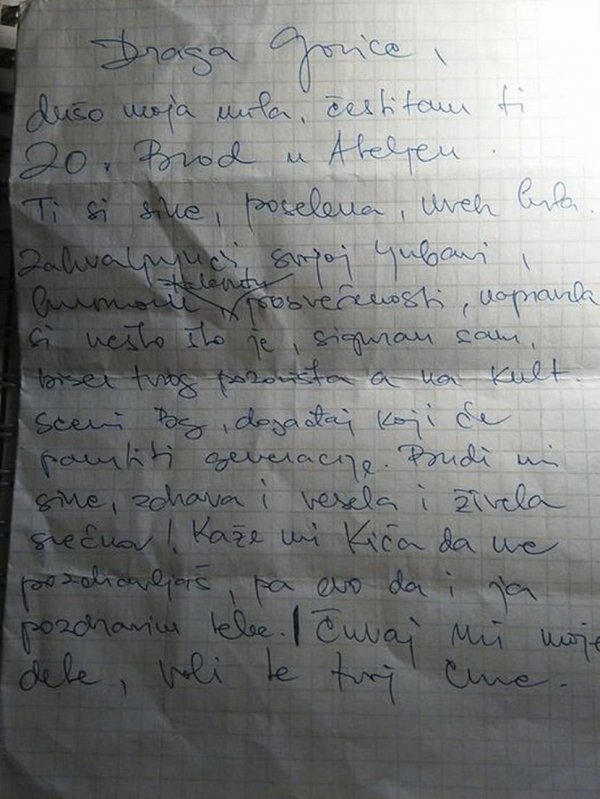 Draga Gorice,
dušo moja mila, čestitam ti
20. Brod u Ateljeu.
Ti si sine, poselena, uvek bila.
Zahvaljujući svojoj ljubavi,
talentu
posvećenosti, napravila
si nešto što je, siguran sam,
biser tvog pozorišta a na kult.
sceni Bg, događaj koji će
pamtiti generacije. Budi mi
sine, zdrava i vesela i živela
srećna! Kaže mi Kića da me
pozdravljaš, pa evo da i ja
pozdravim tebe. Čuvaj mi moje
dete, voli te tvoj